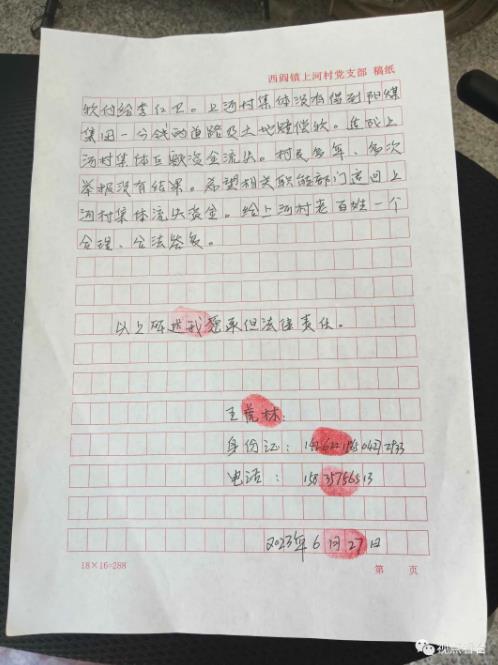 西阎镇上河村党支部 稿纸
款付给李红卫。上河村集体没有得到阳煤
集团一分钱的道路及土地赔偿款。造成上
河村集体巨款资金流失。村民多年、多次
举报没有结果。希望相关职能部门追回上
河村集体流失资金。给上河村老百姓一个
合理、合法答复。
以上陈述我愿承但法律责任。
王虎林:
身份证:
电话:
2023年6月27日
18×16=288
第 页